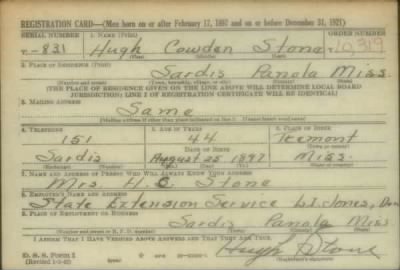 REGISTRATION CARD—(Men born on or after February 17, 1897 and on or before December 31, 1921)
SERIAL NUMBER 1. NAME (Print) ORDER NUMBER
T-831 Hugh Cowden Stone T10,319
(First) (Middle) (Last)
2. PLACE OF RESIDENCE (Print)
Sardis Panola Miss.
(Number and street) (Town, township, village, or city) (County) (State)
[THE PLACE OF RESIDENCE GIVEN ON THE LINE ABOVE WILL DETERMINE LOCAL BOARD
JURISDICTION; LINE 2 OF REGISTRATION CERTIFICATE WILL BE IDENTICAL]
3. MAILING ADDRESS
Same
[Mailing address if other than place indicated on line 2. If same insert word same]
4. TELEPHONE 5. AGE IN YEARS 6. PLACE OF BIRTH
151 44
DATE OF BIRTH
Sardis August 25 1897 Miss.
7. NAME AND ADDRESS OF PERSON WHO WILL ALWAYS KNOW YOUR ADDRESS
Mrs H. C Stone
8. EMPLOYER'S NAME AND ADDRESS
State Extension Service
9. PLACE OF EMPLOYMENT OR BUSINESS
Sardis Panola Miss
(Number and street or R. F. D. number) (Town) (County) (State)
I AFFIRM THAT I HAVE VERIFIED ABOVE ANSWERS AND THAT THEY ARE TRUE.
D. S. S. Form 1
(Revised 1-2-42)
Hugh C Stone
(Registrant's signature)